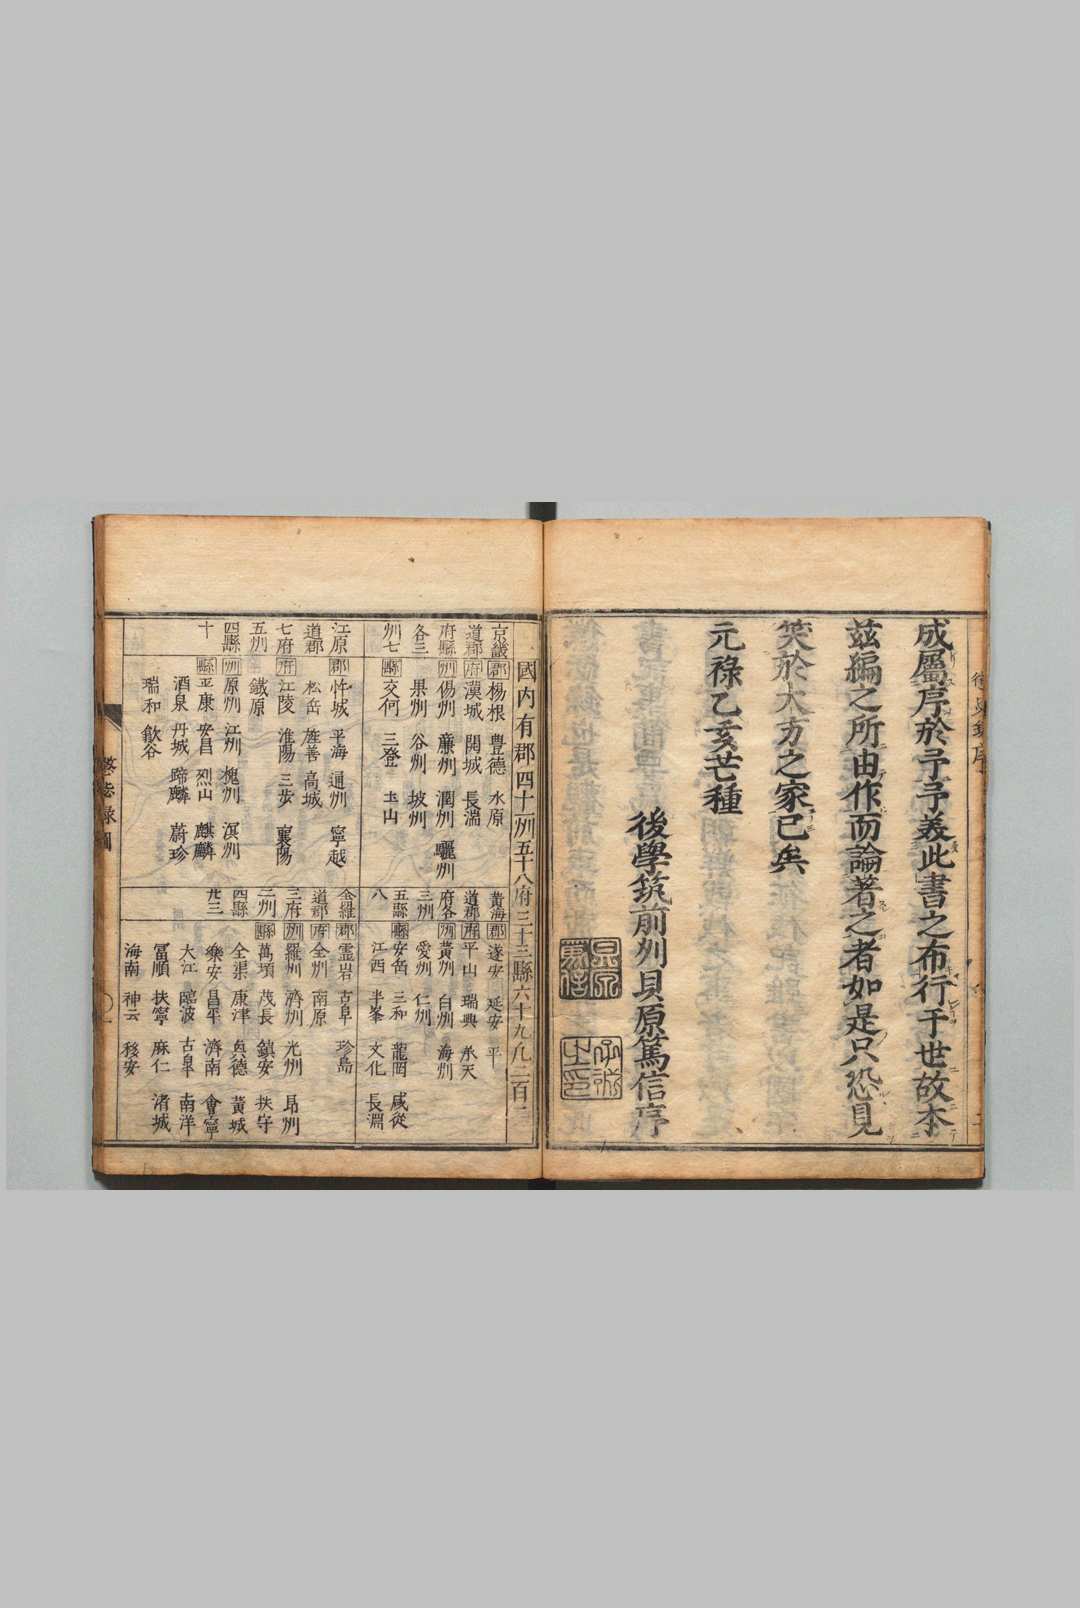 成屬序於予予義此書之布行于世故本
茲編之所由作而論著之者如是只恐見
笑於大方之家已矣
元祿乙亥芒種
後學筑前州貝原篤信序
國內有郡四十一州五十八府三十三縣六十九凡二百二
京畿道郡府縣各三州七
郡 楊根 豊德 水原
府 漢城 開城 長湍
州 楊州 廉州 潤州 驪州
果州 谷州 坡州
縣 交何 三登 土山
江原道郡七府五州四縣十
郡 忤城 平海 通州 寧越
松岳 旌善 高城
府 江陵 淮陽 三步 襄陽
鐵原
州 原州 江州 槐州 溟州
縣 平康 安昌 烈山 麒麟
酒泉 丹城 蹄麟 蔚珍
瑞和 歙谷
黃海道郡府各三州五縣八
郡 遂安 延安 平
府 平山 瑞興 承天
州 黃州 白州 海州
愛州 仁州
縣 安岳 三和 龍岡 咸從
江西 半峯 文化 長淵
全羅道郡三府二州四縣廿三
郡 霊岩 古阜 珍島
府 全州 南原
州 羅州 濟州 光州 昂州
縣 萬頃 茂長 鎮安 扶守
全渠 康津 興德 黃城
樂安 昌平 濟南 會寧
大江 臨波 古阜 南洋
冨順 扶寧 麻仁 渚城
海南 神云 移安
懲毖錄圖
〇一